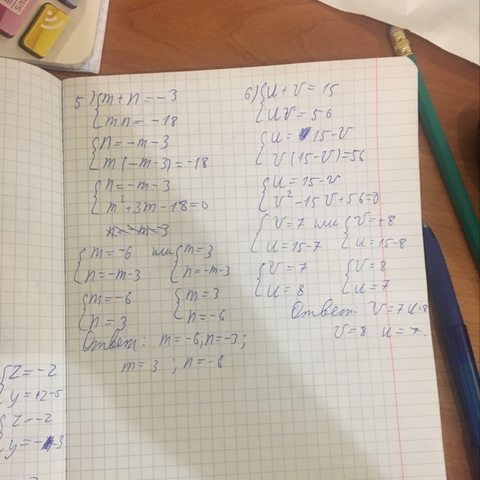 5) { m + n = -3
{ mn = -18
{ n = -m-3
{ m(-m-3) = -18
{ n = -m-3
{ m² + 3m - 18 = 0
{ m = -6 или { m = 3
{ n = -m-3 { n = -m-3
{ m = -6 { m = 3
{ n = 3 { n = -6
Ответ: m = -6, n = -3;
m = 3 ; n = -6
6) { u + v = 15
{ uv = 56
{ u = 15-v
{ v(15-v) = 56
{ u = 15-v
{ v² - 15v + 56 = 0
{ v = 7 или { v = +8
{ u = 15-7 { u = 15-8
{ v = 7 { v = 8
{ u = 8 { u = 7
Ответ: v = 7 u = 8
v = 8 u = 7.
{ z = -2
{ y = +2-5
{ z = -2
{ y = -3